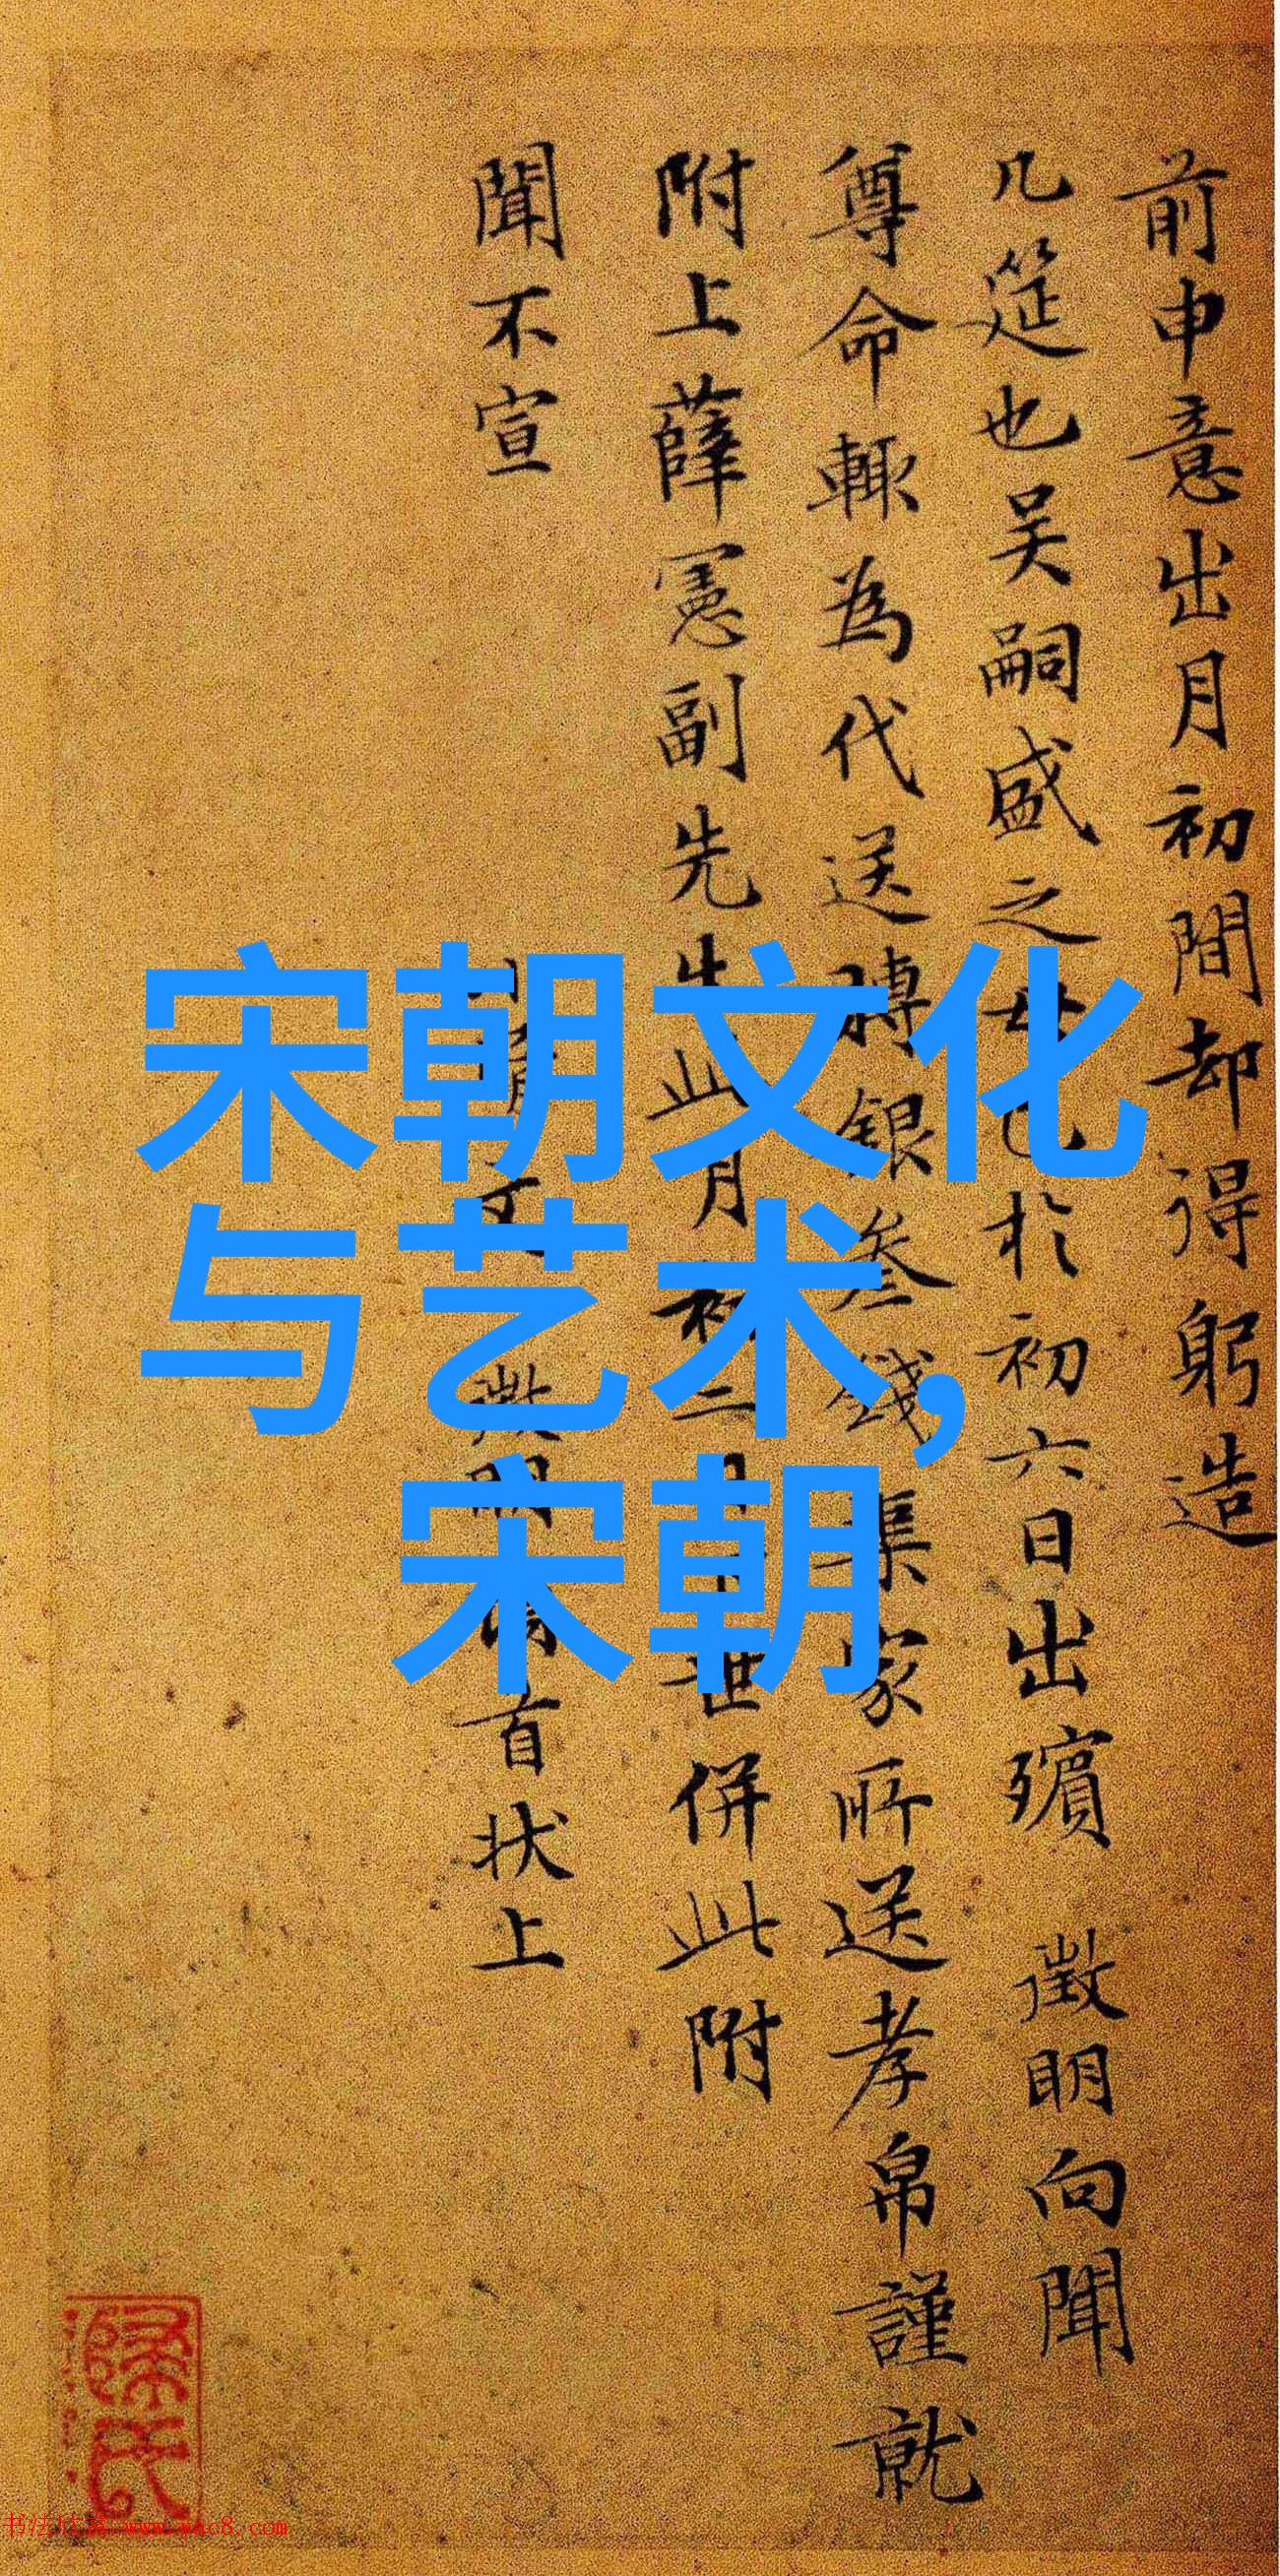 前申意出月初間却得躬造
几筵也吴嗣盛之母也於初六日出殯 徵明向聞
尊命輙為代送賻銀叁錢集家所送孝帛謹就
附上薛憲副先生此月初二日世併此附
聞不宣
文徵明首状上
宋朝文化
与艺术,
宋朝
书法欣赏 www.yac8.com